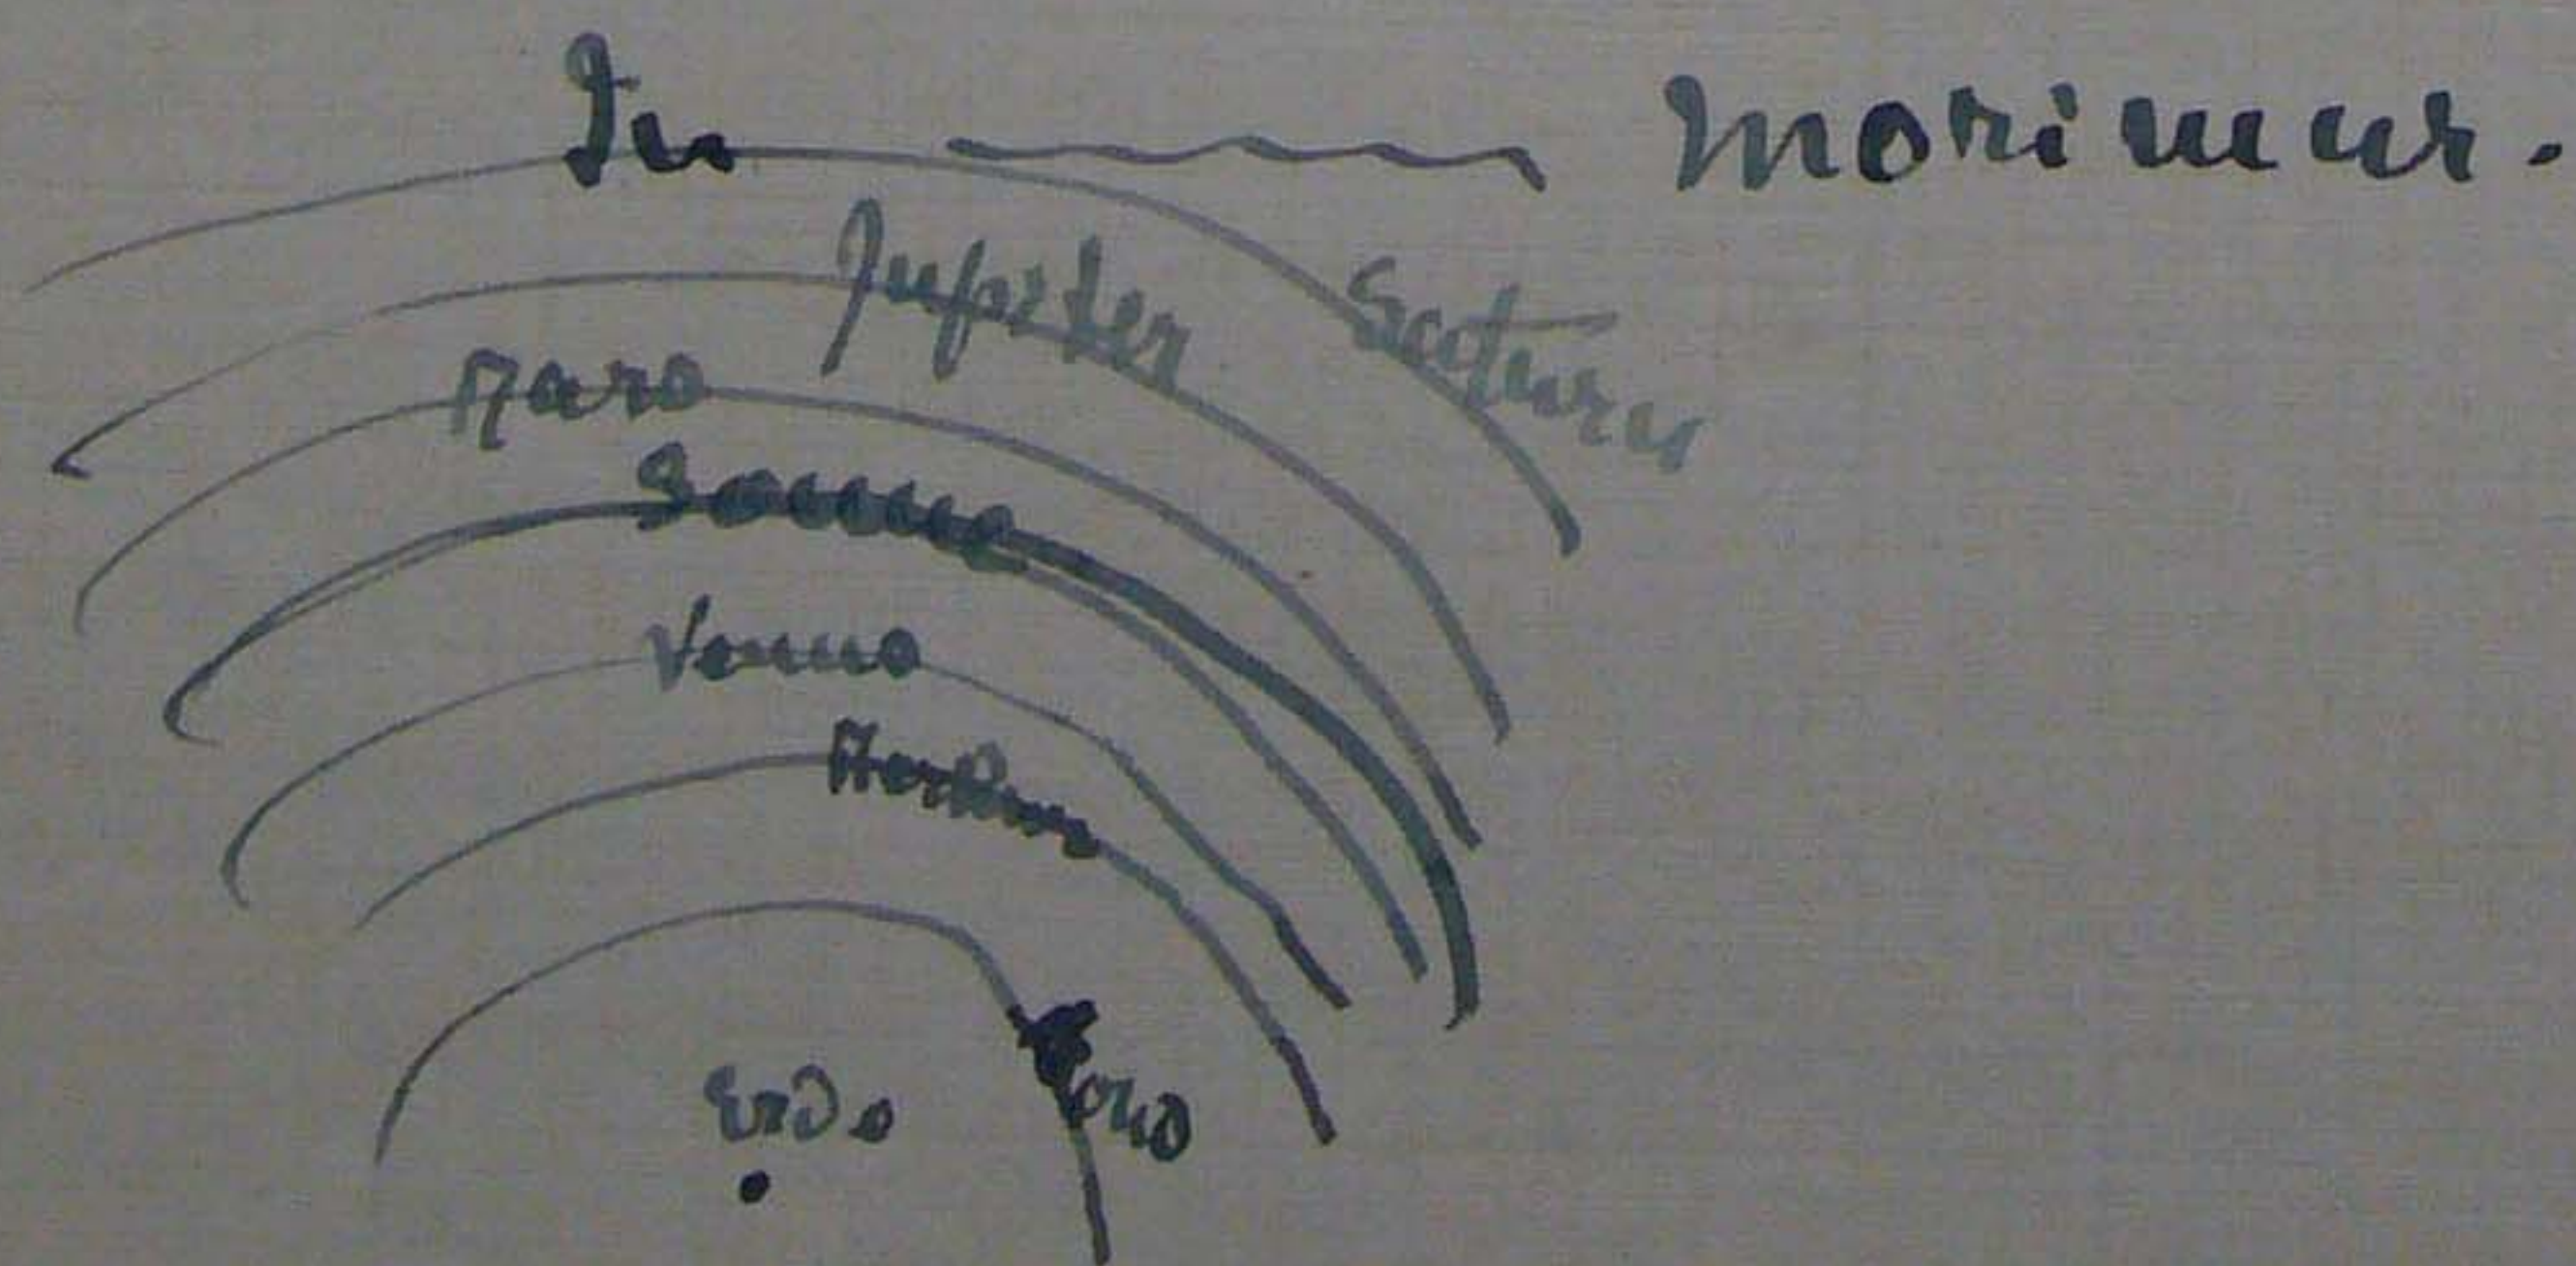 In morimur.
Jupiter
Saturn
Mars
Sonne
Venus
Merkur
Erde